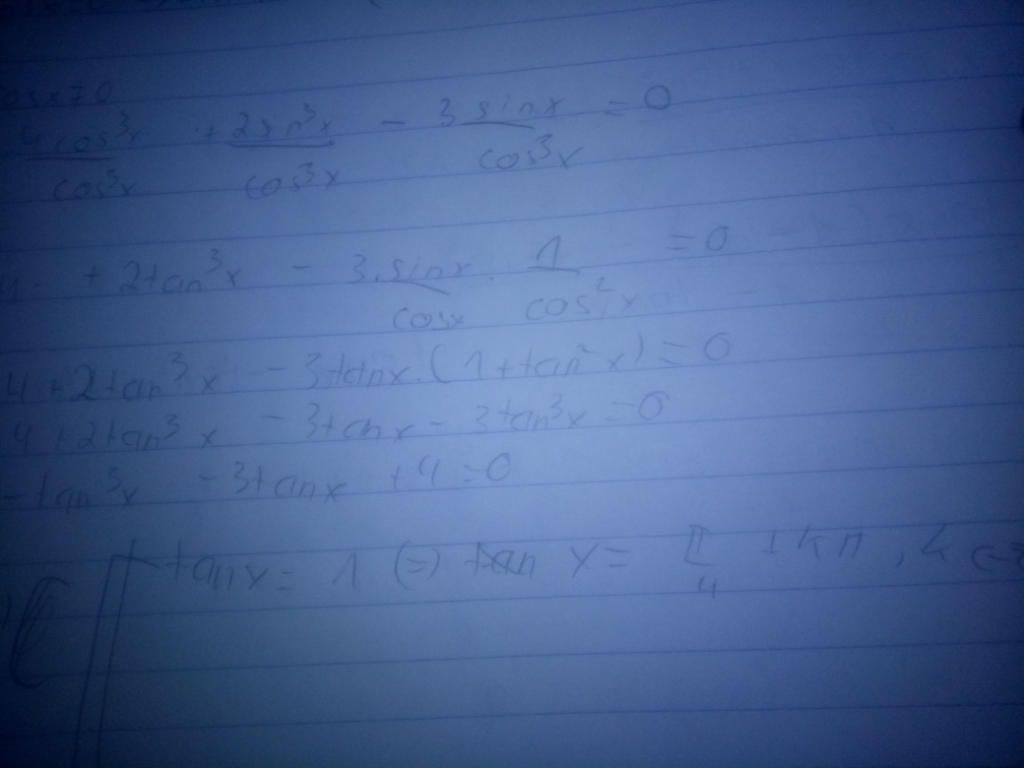 cosx≠0
4cos³x/cos³x + 2sin³x/cos³x - 3sinx/cos³x = 0
4 + 2tan³x - 3.sinx/cosx . 1/cos²x = 0
4+2tan³x - 3tanx.(1+tan²x)=0
4+2tan³x - 3tanx - 3tan³x=0
-tan³x - 3tanx +4=0
tanx = 1 (=) x = π/4 +kπ, k